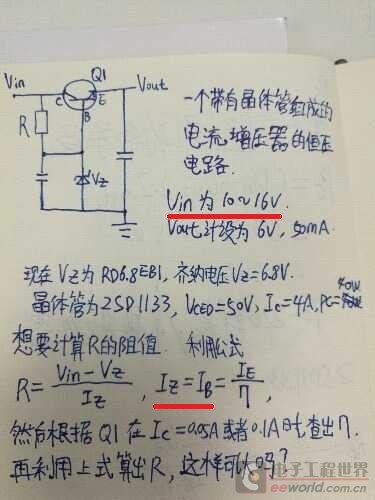 Vin
Q1
Vout
C
E
B
R
Vz
一个带有晶体管组成的
电流增压器的恒压
电路.
Vin 为 10~16V.
Vout 计设为 6V, 50mA.
现在 Vz 为 RD6.8EB1, 齐纳电压 Vz=6.8V.
晶体管为2SD1133, VCEO=50V, Ic=4A, Pc=40W
想要计算R的阻值. 利用公式
R= Vin-Vz / Iz , Iz=IB= IE / η ,
然后根据 Q1 在 Ic=0.05A 或者0.1A时查出η.
再利用上式算出R, 这样可以吗?
电子工程世界
eeworld.com.cn